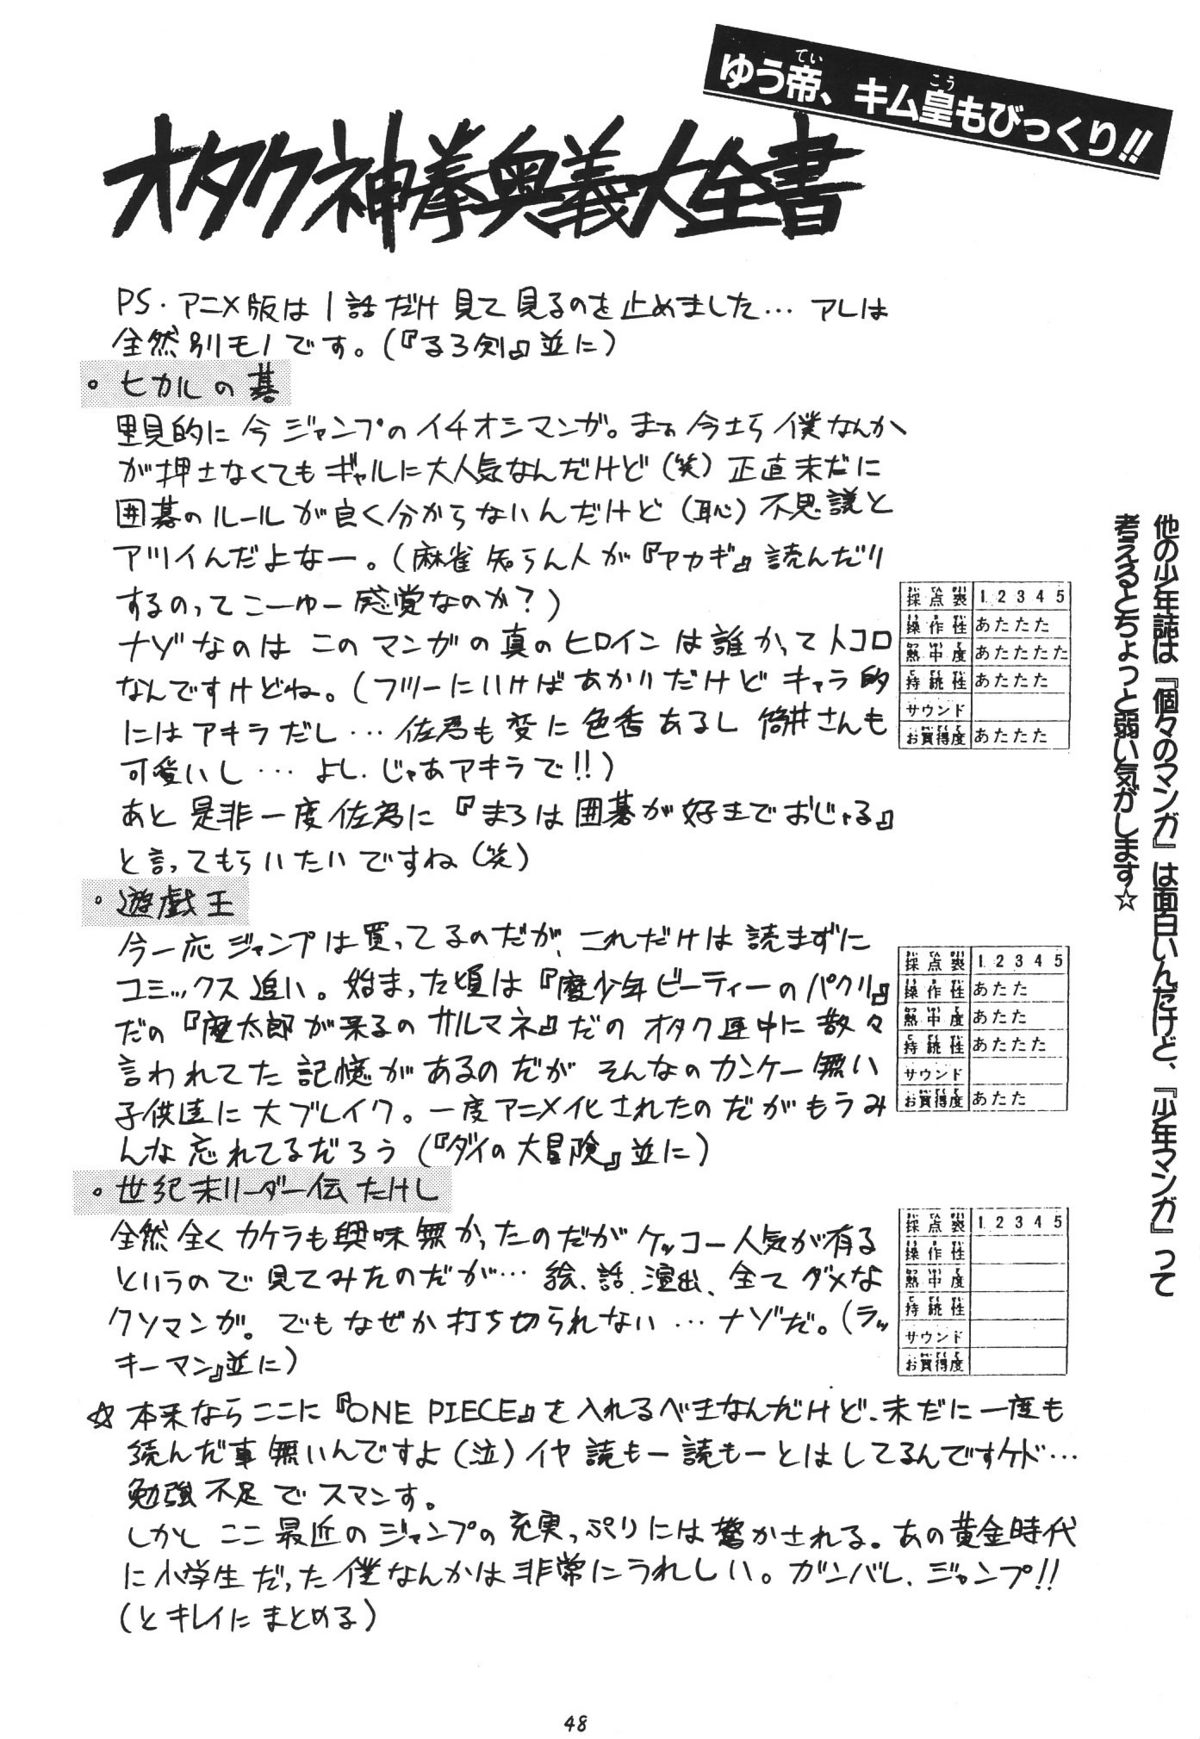 ゆう帝、キム皇もびっくり!!
オタク神拳奥義大全書
PS.アニメ版は1話だけ見て見るのを止めました…アレは
全然別モノです。(『るろ剣』並に)
。ヒカルの碁
里見的に今ジャンプのイチオシマンガ。まぁ今さら僕なんか
が押さなくてもギャルに大人気なんだけど(笑)正直未だに
囲碁のルールが良く分からないんだけど(恥)不思議と
アツイんだよなー。(麻雀知らん人が『アカギ』読んだり
するのってこーゆー感覚なのか?)
ナゾなのはこのマンガの真のヒロインは誰かってトコロ
なんですけどね。(フツーにいけばあかりだけどキャラ的
にはアキラだし…佐為も変に色香あるし筒井さんも
可愛いし…よし.じゃあアキラで!!)
あと是非一度佐為に『まろは囲碁が好きでおじゃる』
と言ってもらいたいですね(笑)
採点表 1 2 3 4 5
操作性 あたたた
熱中度 あたたたた
持続性 あたたた
サウンド
お買得度 あたたた
。遊戯王
今一応ジャンプは買ってるのだが、これだけは読まずに
コミックス追い。始まった頃は『魔少年ビーティーのパクリ』
だの『魔太郎が来るのサルマネ』だのオタク連中に散々
言われてた記憶があるのだがそんなのカンケー無い
子供達に大ブレイク。一度アニメ化されたのだがもうみ
んな忘れてるだろう(『ダイの大冒険』並に)
採点表 1 2 3 4 5
操作性 あたた
熱中度 あたた
持続性 あたたた
サウンド
お買得度 あたた
。世紀末リーダー伝たけし
全然全くカケラも興味無かったのだがケッコー人気が有る
というので見てみたのだが…絵、話、演出、全てダメな
クソマンガ。でもなぜか打ち切られない…ナゾだ。(ラッ
キーマン』並に)
採点表 1 2 3 4 5
操作性
熱中度
持続性
サウンド
お買得度
☆本来ならここに『ONE PIECE』を入れるべきなんだけど、未だに一度も
読んだ事無いんですよ(泣)イヤ読もー読もーとはしてるんですケド…
勉強不足でスマンす。
しかしここ最近のジャンプの充実っぷりには驚かされる。あの黄金時代
に小学生だった僕なんかは非常にうれしい。ガンバレ、ジャンプ!!
(とキレイにまとめる)
他の少年誌は『個々のマンガ』は面白いんだけど、『少年マンガ』って
考えるとちょっと弱い気がします☆
48